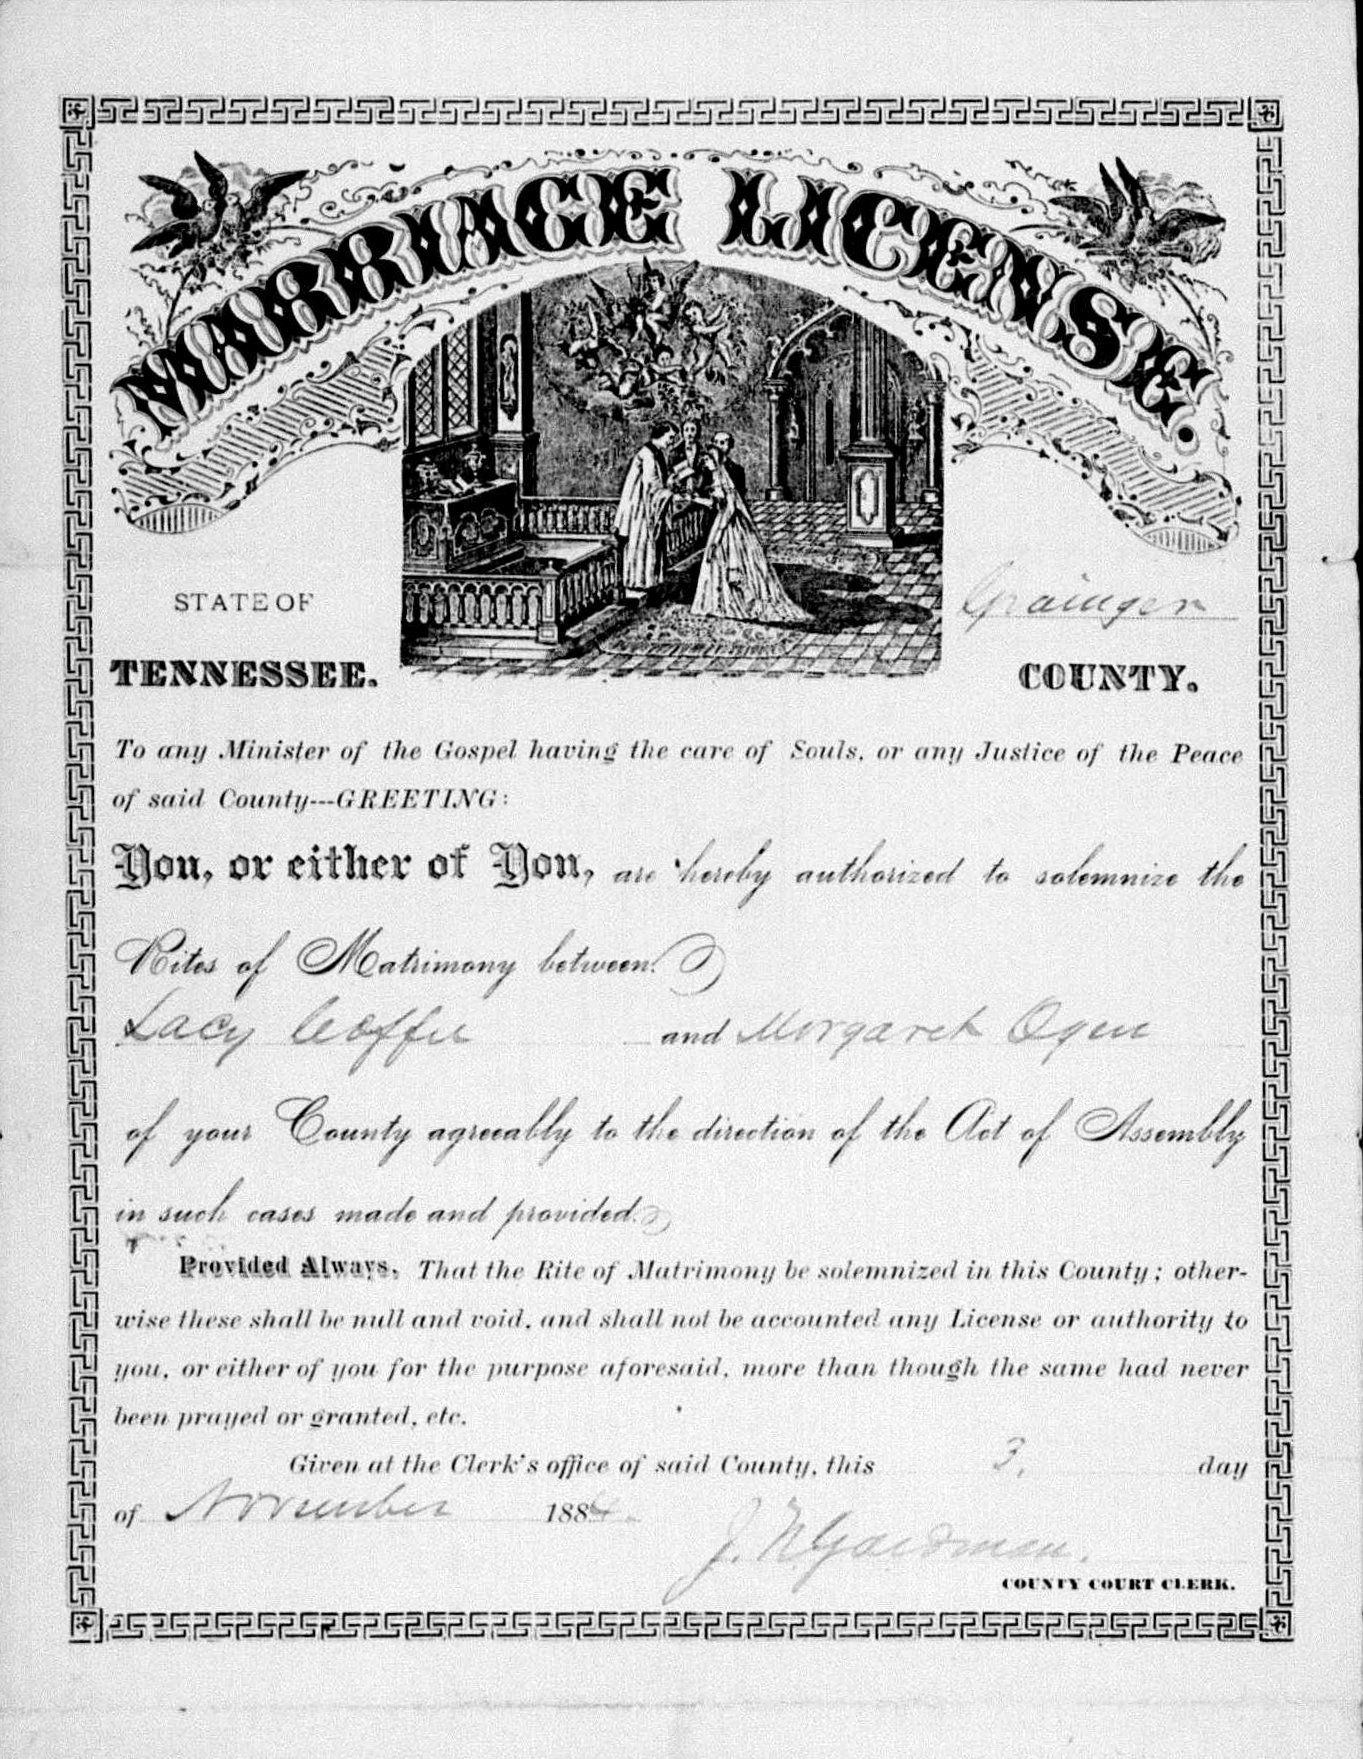 MARRIAGE LICENSE.
STATE OF
TENNESSEE.
Grainger
COUNTY.
To any Minister of the Gospel having the care of Souls, or any Justice of the Peace
of said County---GREETING:
You, or either of You, are hereby authorized to solemnize the
Rites of Matrimony between
Lacy Coffee and Morgaret Ogen
of your County agreeably to the direction of the Act of Assembly
in such cases made and provided.
Provided Always, That the Rite of Matrimony be solemnized in this County; other-
wise these shall be null and void, and shall not be accounted any License or authority to
you, or either of you for the purpose aforesaid, more than though the same had never
been prayed or granted, etc.
Given at the Clerk's office of said County, this 3. day
of November 1884.
J. N
COUNTY COURT CLERK.